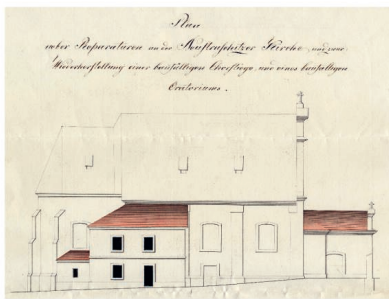 Plan
ueber Reparaturen an der Neustraschitzer Kirche, und neue
Wiederherstellung einer baufälligen Chorstiege, und eines baufälligen
Oratoriums.